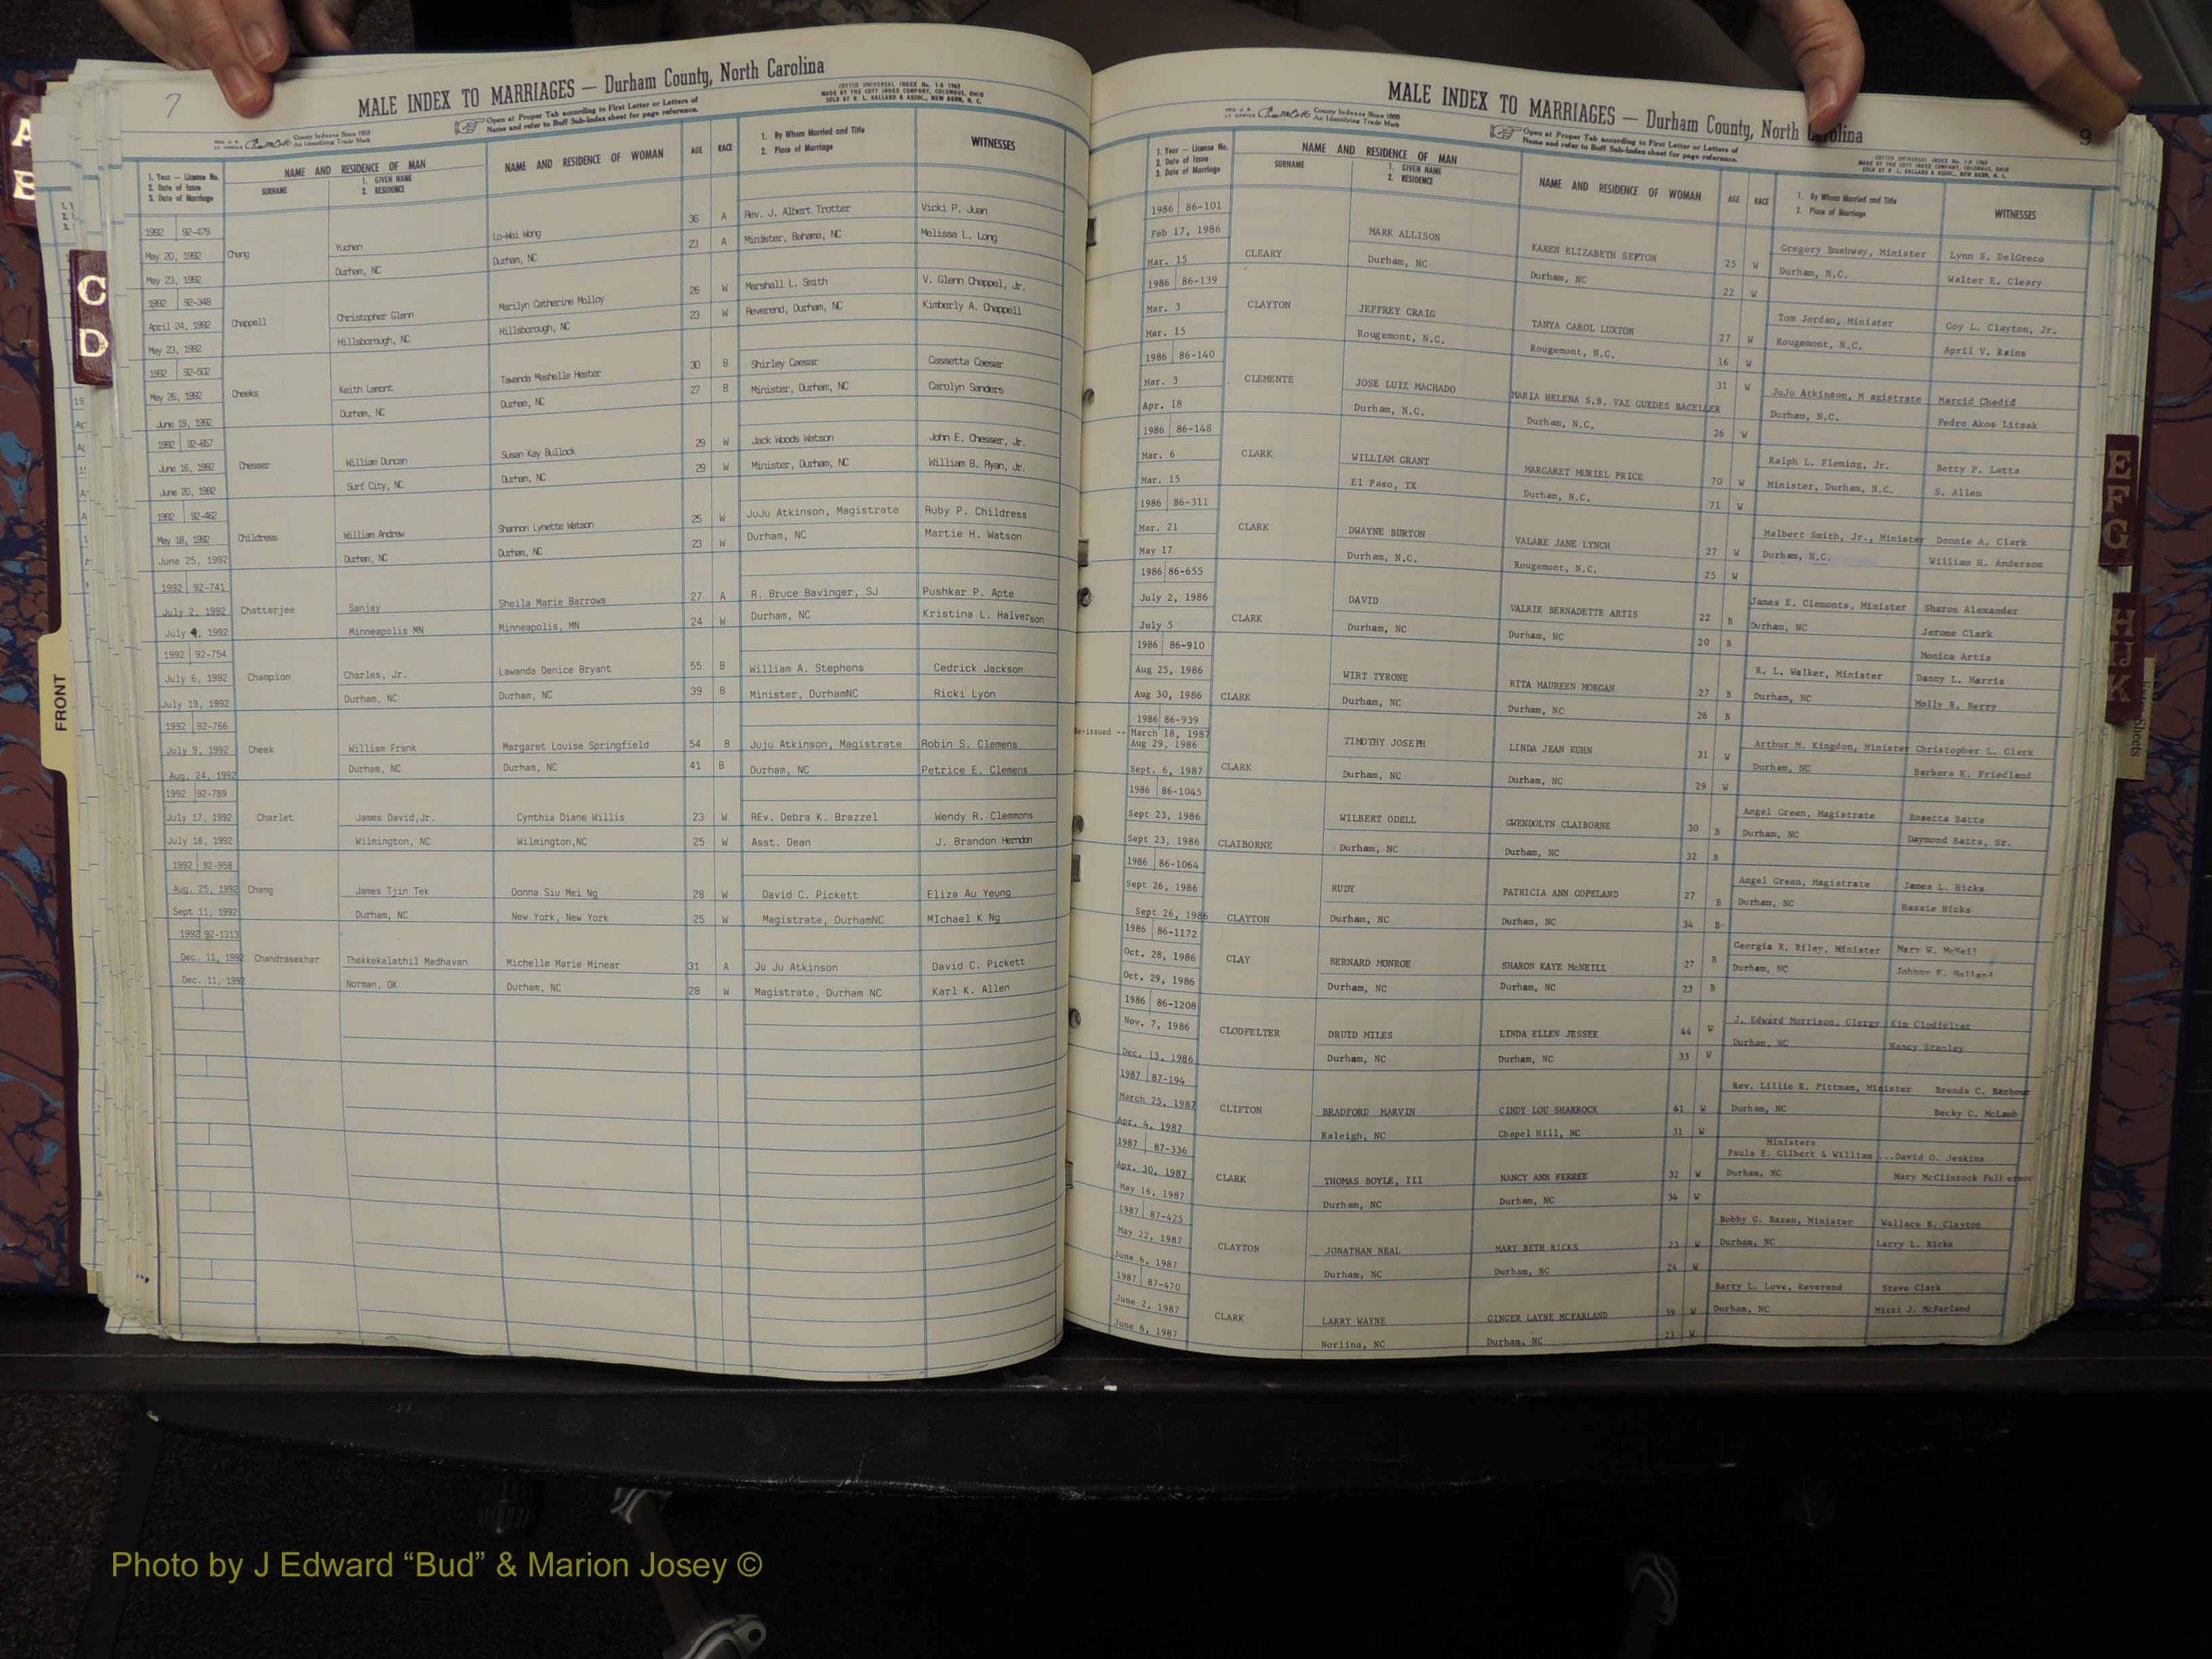 7
MALE INDEX TO MARRIAGES — Durham County, North Carolina
Open at Proper Tab according to First Letter or Letters of
Name and refer to Buff Sub-Index sheet for page reference.
COTTED UNIVERSAL INDEX No. 1-S 1963
MADE BY THE COTT INDEX COMPANY, COLUMBUS, OHIO
SOLD BY R. L. BALLARD & ASSOC., NEW BERN, N. C.
1. Year — License No.
2. Date of Issue
3. Date of Marriage
NAME AND RESIDENCE OF MAN
SURNAME
1. GIVEN NAME
2. RESIDENCE
NAME AND RESIDENCE OF WOMAN
AGE
RACE
1. By Whom Married and Title
2. Place of Marriage
WITNESSES
1992 92-479 36 A Rev. J. Albert Trotter Vicki P. Juan
May 20, 1992 Chang Yuchen Lo-Wei Wong 23 A Minister, Bahama, NC Melissa L. Long
May 23, 1992 Durham, NC Durham, NC
1992 92-348 26 W Marshall L. Smith V. Glenn Chappel, Jr.
April 24, 1992 Chappell Christopher Glenn Marilyn Catherine Molloy 23 W Reverend, Durham, NC Kimberly A. Chappell
May 23, 1992 Hillsborough, NC Hillsborough, NC
1992 92-502 30 B Shirley Caesar Cassetta Caesar
May 26, 1992 Cheeks Keith Lamont Tawanda Mashelle Hester 27 B Minister, Durham, NC Carolyn Sanders
June 19, 1992 Durham, NC Durham, NC
1992 92-657 29 W Jack Woods Watson John E. Chesser, Jr.
June 16, 1992 Chesser William Duncan Susan Kay Bullock 29 W Minister, Durham, NC William B. Ryan, Jr.
June 20, 1992 Surf City, NC Durham, NC
1992 92-462 25 W JuJu Atkinson, Magistrate Ruby P. Childress
May 18, 1992 Childress William Andrew Shannon Lynette Watson 23 W Durham, NC Martie H. Watson
June 25, 1992 Durham, NC Durham, NC
1992 92-741
July 2, 1992 Chatterjee Sanjay Sheila Marie Barrows 27 A R. Bruce Bavinger, SJ Pushkar P. Apte
July 4, 1992 Minneapolis MN Minneapolis, MN 24 W Durham, NC Kristina L. Halverson
1992 92-754
July 6, 1992 Champion Charles, Jr. Lawanda Denice Bryant 55 B William A. Stephens Cedrick Jackson
July 19, 1992 Durham, NC Durham, NC 39 B Minister, DurhamNC Ricki Lyon
1992 92-766
July 9, 1992 Cheek William Frank Margaret Louise Springfield 54 B Juju Atkinson, Magistrate Robin S. Clemens
Aug. 24, 1992 Durham, NC Durham, NC 41 B Durham, NC Petrice E. Clemens
1992 92-789
July 17, 1992 Charlet James David,Jr. Cynthia Diane Willis 23 W REv. Debra K. Brazzel Wendy R. Clemmons
July 18, 1992 Wilmington, NC Wilmington,NC 25 W Asst. Dean J. Brandon Herndon
1992 92-958
Aug. 25, 1992 Chang James Tjin Tek Donna Siu Mei Ng 28 W David C. Pickett Eliza Au Yeung
Sept 11, 1992 Durham, NC New York, New York 25 W Magistrate, DurhamNC MIchael K Ng
1992 92-1313
Dec. 11, 1992 Chandrasekhar Thekkekalathil Madhavan Michelle Marie Minear 31 A Ju Ju Atkinson David C. Pickett
Dec. 11, 1992 Norman, OK Durham, NC 28 W Magistrate, Durham NC Karl K. Allen
9
MALE INDEX TO MARRIAGES — Durham County, North Carolina
Open at Proper Tab according to First Letter or Letters of
Name and refer to Buff Sub-Index sheet for page reference.
1. Year — License No.
2. Date of Issue
3. Date of Marriage
NAME AND RESIDENCE OF MAN
SURNAME
1. GIVEN NAME
2. RESIDENCE
NAME AND RESIDENCE OF WOMAN
AGE
RACE
1. By Whom Married and Title
2. Place of Marriage
WITNESSES
1986 86-101
Feb 17, 1986 MARK ALLISON KAREN ELIZABETH SEFTON 25 W Gregory Bushway, Minister Lynn S. DelGreco
Mar. 15 CLEARY Durham, NC Durham, NC 22 W Durham, N.C. Walter E. Cleary
1986 86-139
Mar. 3 CLAYTON JEFFREY CRAIG TANYA CAROL LUXTON 27 W Tom Jordan, Minister Coy L. Clayton, Jr.
Mar. 15 Rougemont, N.C. Rougemont, N.C. 16 W Rougemont, N.C. April V. Rains
1986 86-140
Mar. 3 CLEMENTE JOSE LUIZ MACHADO MARIA HELENA S.B. VAZ GUEDES BACELLER 31 W JuJu Atkinson, M agistrate Marcid Chedid
Apr. 18 Durham, N.C. Durham, N.C. 26 W Durham, N.C. Pedro Akos Litsek
1986 86-148
Mar. 6 CLARK WILLIAM GRANT MARGARET MURIEL PRICE 70 W Ralph L. Fleming, Jr. Betty P. Latta
Mar. 15 El Paso, TX Durham, N.C. 71 W Minister, Durham, N.C. S. Allen
1986 86-311
Mar. 21 CLARK DWAYNE BURTON VALARE JANE LYNCH 27 W Malbert Smith, Jr., Minister Donnie A. Clark
May 17 Durham, N.C. Rougemont, N.C. 25 W Durham, N.C. William H. Anderson
1986 86-655
July 2, 1986 DAVID VALRIE BERNADETTE ARTIS 22 B James E. Clemonts, Minister Sharon Alexander
July 5 CLARK Durham, NC Durham, NC 20 B Durham, NC Jerome Clark
Monica Artis
1986 86-910
Aug 25, 1986 WIRT TYRONE RITA MAUREEN MORGAN 27 B R. L. Walker, Minister Dancy L. Harris
Aug 30, 1986 CLARK Durham, NC Durham, NC 26 B Durham, NC Molly B. Berry
1986 86-939
Re-issued -- March 18, 1987
Aug 29, 1986 TIMOTHY JOSEPH LINDA JEAN KUHN 31 W Arthur M. Kingdon, Minister Christopher L. Clark
Sept. 6, 1987 CLARK Durham, NC Durham, NC 29 W Durham, NC Barbara K. Friedland
1986 86-1045
Sept 23, 1986 WILBERT ODELL GWENDOLYN CLAIBORNE 30 B Angel Green, Magistrate Rosetta Batts
Sept 23, 1986 CLAIBORNE Durham, NC Durham, NC 32 B Durham, NC Daymond Batts, Sr.
1986 86-1064
Sept 26, 1986 RUDY PATRICIA ANN COPELAND 27 B Angel Green, Magistrate James L. Hicks
Sept 26, 1986 CLAYTON Durham, NC Durham, NC 34 B Durham, NC Hassie Hicks
1986 86-1172
Oct. 28, 1986 CLAY BERNARD MONROE SHARON KAYE McNEILL 27 B Georgia R. Riley, Minister Mary W. McNeil
Oct. 29, 1986 Durham, NC Durham, NC 23 B Durham, NC Johnny F. Holland
1986 86-1208
Nov. 7, 1986 CLODFELTER DRUID MILES LINDA ELLEN JESSEE 44 W J. Edward Morrison, Clergy Kim Clodfelter
Dec. 13, 1986 Durham, NC Durham, NC 33 W Durham, NC Nancy Stanley
1987 87-194
March 25, 1987 CLIFTON BRADFORD MARVIN CINDY LOU SHARROCK 41 W Rev. Lillie R. Pittman, Minister Brenda C. Barbour
Apr. 4, 1987 Raleigh, NC Chapel Hill, NC 31 W Durham, NC Becky C. McLamb
1987 87-336 Ministers
Apr. 30, 1987 CLARK THOMAS BOYLE, III NANCY ANN FERREE 32 W Paula E. Gilbert & William ...David O. Jenkins
May 16, 1987 Durham, NC Durham, NC 34 W Durham, NC Mary McClintock Fulkerson
1987 87-425
May 22, 1987 CLAYTON JONATHAN NEAL MARY BETH RICKS 23 W Bobby G. Hazen, Minister Wallace B. Clayton
June 6, 1987 Durham, NC Durham, NC 24 W Durham, NC Larry L. Ricks
1987 87-470
June 2, 1987 CLARK LARRY WAYNE GINGER LAYNE MCFARLAND 39 W Barry L. Love, Reverend Steve Clark
June 6, 1987 Norlina, NC Durham, NC 23 W Durham, NC Mitzi J. McFarland
C
D
FRONT
E
F
G
H
I J
K
Photo by J Edward “Bud” & Marion Josey ©